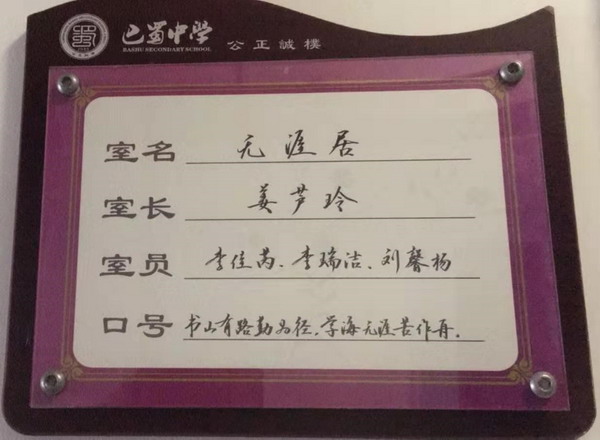 巴蜀中学 公正誠樸
BASHU SECONDARY SCHOOL
室名 无涯居
室长 姜芦玲
室员 李佳芮、李瑞洁、刘馨杨
口号 书山有路勤为径,学海无涯苦作再.